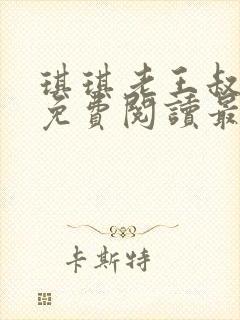 琪琪老王叔
免費閱讀最
卡斯特